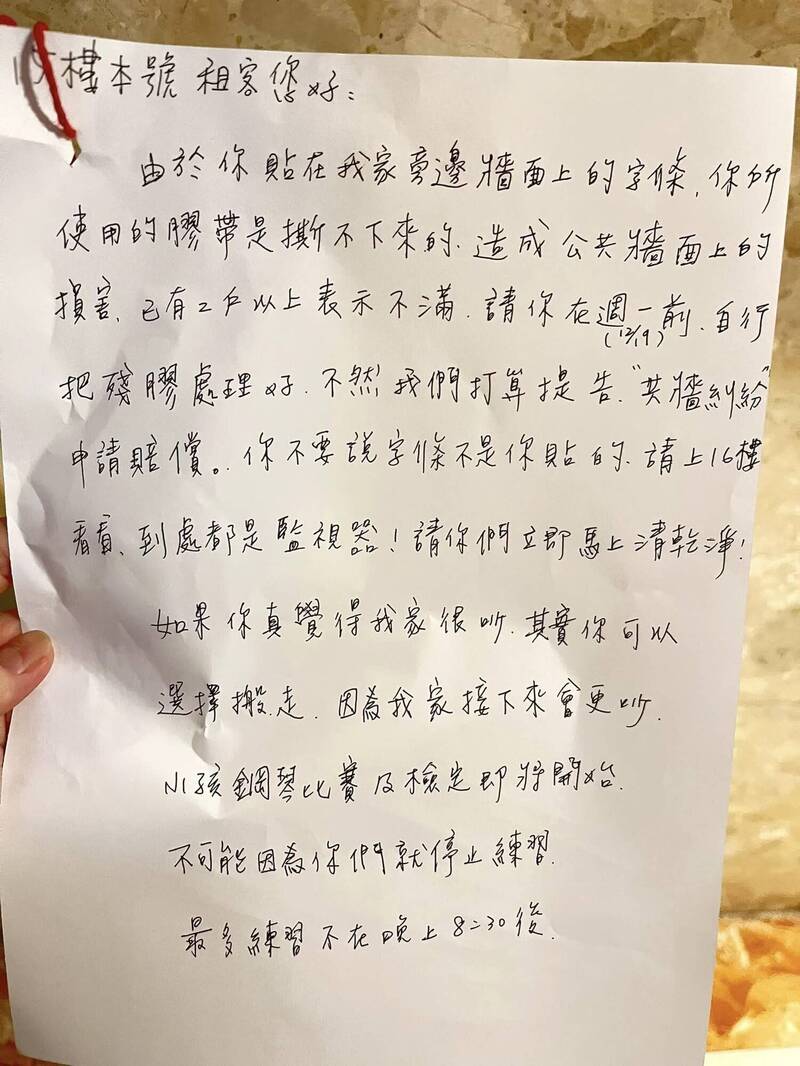 15樓本號租客您好:
由於你貼在我家旁邊牆面上的字條，你所
使用的膠帶是撕不下來的、造成公共牆面上的
損害、已有2戶以上表示不滿、請你在週一前、自行
(12/19)
把殘膠處理好、不然我們打算提告、"共牆糾紛"
申請賠償。你不要說字條不是你貼的、請上16樓
看看、到處都是監視器！請你們立即馬上清乾淨！
如果你真覺得我家很吵、其實你可以
選擇搬走、因為我家接下來會更吵、
小孩鋼琴比賽及檢定即將開始、
不可能因為你們就停止練習、
最多練習不在晚上8:30後、